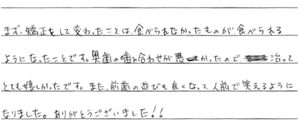 まず、矯正をして変わったことは、食べられなかったものが食べられる
ようになったことです。奥歯の噛み合わせが悪かったので治って
とても嬉しかったです。また、前歯の並びも良くなって人前で笑えるように
なりました。ありがとうございました!!